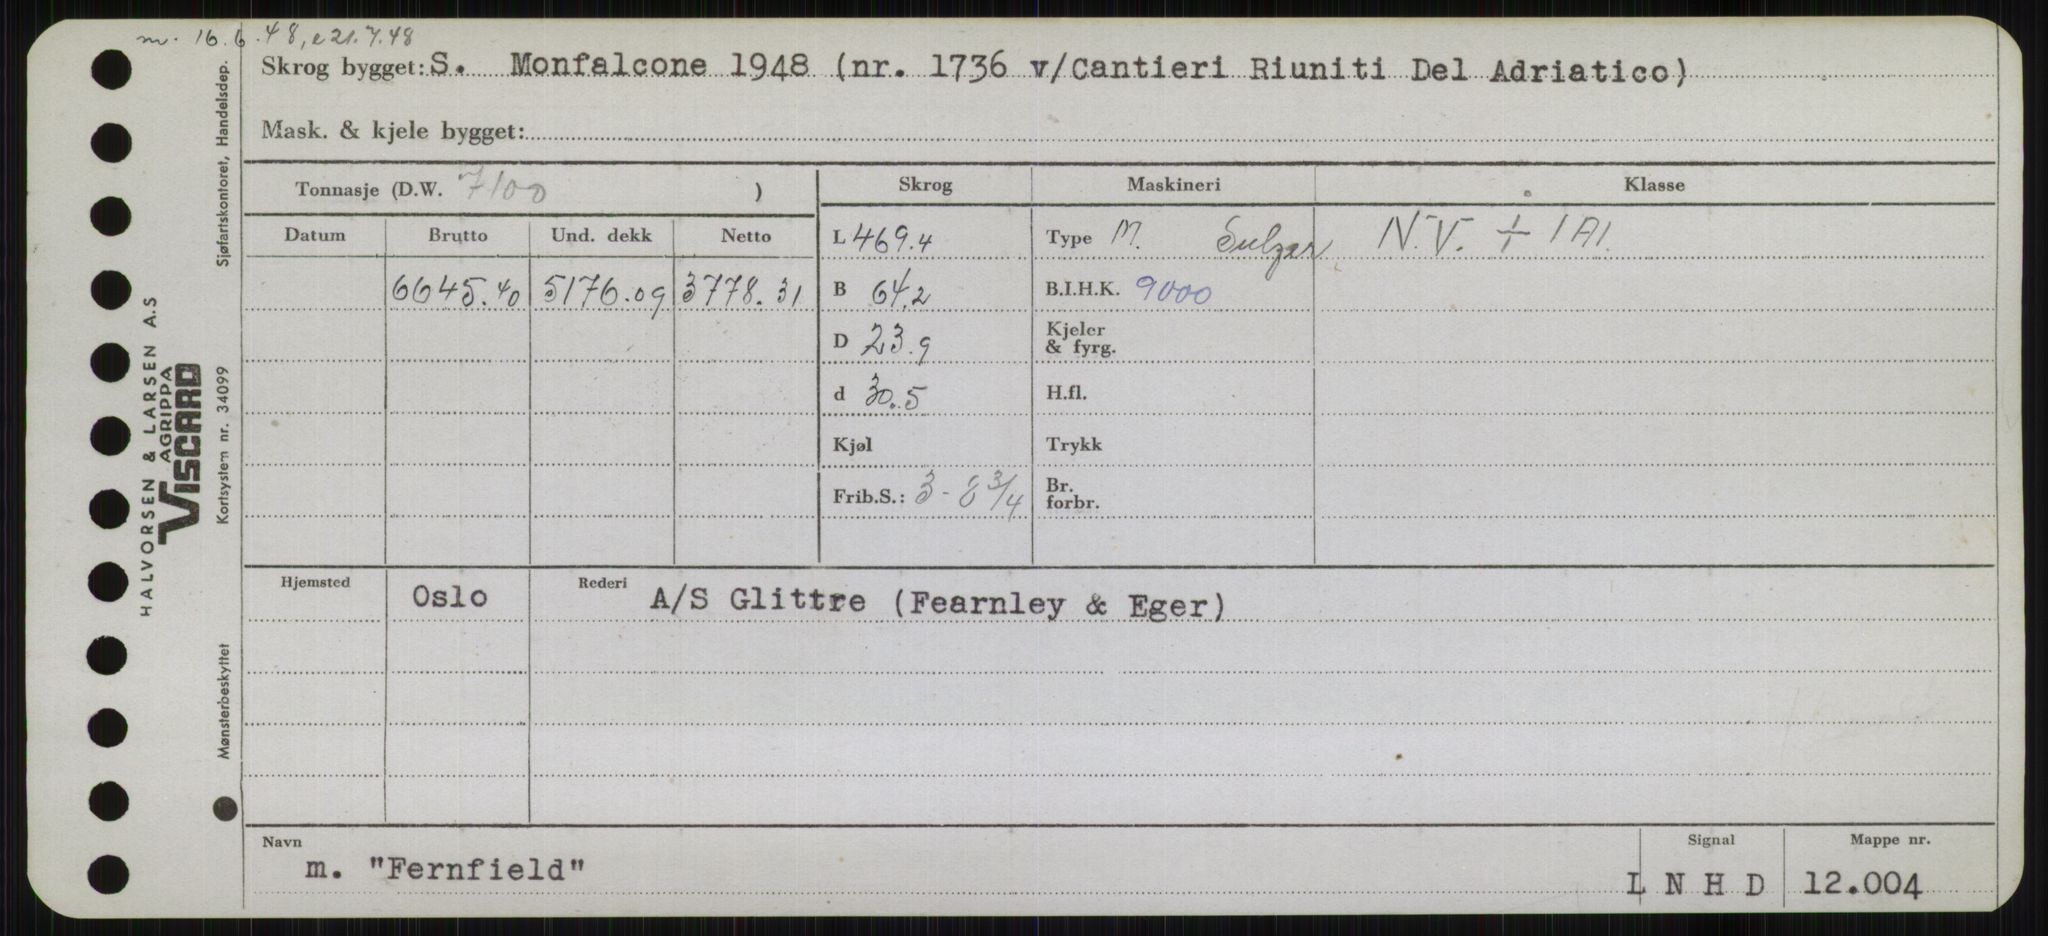 m. 16.6.48, e 21.7.48
Skrog bygget: S. Monfalcone 1948 (nr. 1736 v/Cantieri Riuniti Del Adriatico)
Mask. & kjele bygget:
Tonnasje (D.W. 7100 )
Skrog Maskineri Klasse
Datum Brutto Und. dekk Netto
L 469.4 Type M. Sulzer N.V. + 1A1.
6645.40 5176.09 3778.31 B 64.2 B.I.H.K. 9000
D 23.9 Kjeler & fyrg.
d 30.5 H.fl.
Kjøl Trykk
Frib.S.: 3 - 8 3/4 Br. forbr.
Hjemsted Oslo Rederi A/S Glittre (Fearnley & Eger)
Navn Signal Mappe nr.
m. "Fernfield" L N H D 12.004
HALVORSEN & LARSEN A.S
AGRIPPA
VISCARD
Sjøfartskontoret, Handelsdep.
Kortsystem nr. 34099
Mønsterbeskyttet